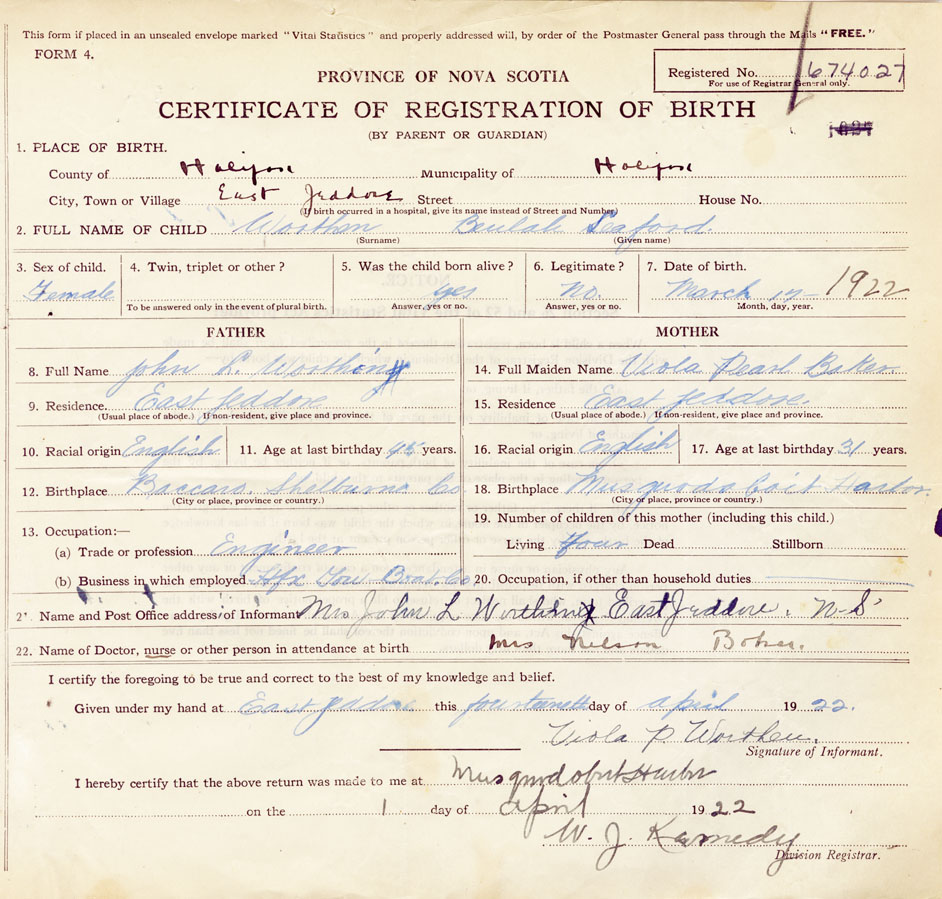 This form if placed in an unsealed envelope marked "Vital Statistics" and properly addressed will, by order of the Postmaster General pass through the Mails "FREE."
FORM 4.
Registered No. 674027
For use of Registrar General only.
PROVINCE OF NOVA SCOTIA
CERTIFICATE OF REGISTRATION OF BIRTH
(BY PARENT OR GUARDIAN)
1. PLACE OF BIRTH.
County of Halifax Municipality of Halifax
City, Town or Village East Jeddore Street House No.
(If birth occurred in a hospital, give its name instead of Street and Number)
2. FULL NAME OF CHILD Worthen Beulah Seaford.
(Surname) (Given name)
3. Sex of child. 4. Twin, triplet or other? 5. Was the child born alive? 6. Legitimate? 7. Date of birth.
Female yes No. March 17 1922
To be answered only in the event of plural birth. Answer, yes or no. Answer, yes or no. Month, day, year.
FATHER MOTHER
8. Full Name John L. Worthing 14. Full Maiden Name Viola Pearl Baker.
9. Residence. East Jeddore 15. Residence East Jeddore.
(Usual place of abode.) If non-resident, give place and province. (Usual place of abode.) If non-resident, give place and province.
10. Racial origin English 11. Age at last birthday 45 years. 16. Racial origin English 17. Age at last birthday 31 years.
12. Birthplace Baccaro, Shelburne Co 18. Birthplace Musquodoboit Harbor.
(City or place, province or country.) (City or place, province or country.)
13. Occupation:— 19. Number of children of this mother (including this child.)
(a) Trade or profession Engineer Living Four Dead Stillborn
(b) Business in which employed Hfx Tow Boat. Co 20. Occupation, if other than household duties
21 Name and Post Office address of Informant Mrs John L Worthing East Jeddore. N.S
22. Name of Doctor, nurse or other person in attendance at birth Mrs Nelson Baker.
I certify the foregoing to be true and correct to the best of my knowledge and belief.
Given under my hand at East Jeddore this fourteenth day of April 1922.
Viola P Worthen.
Signature of Informant.
I hereby certify that the above return was made to me at Musquodoboit Harbor
on the 1 day of April 1922
W. J. Kennedy
Division Registrar.